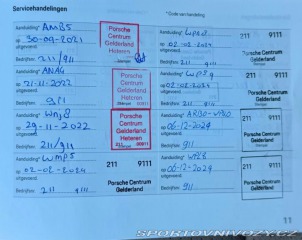 Servicehandelingen
* Code van handeling
Aanduiding* AM85
op 30-09-2021
uitgevoerd:
Bedrijfsnr. 211/911
Porsche
Centrum
Gelderland
Heteren
Aanduiding*
op 02-02-2024
uitgevoerd:
Bedrijfsnr. 211 911
211 9111
Porsche Centrum
Gelderland
Aanduiding* ANA4
op 21-11-2022
uitgevoerd:
Bedrijfsnr. 911
Porsche
Centrum
Gelderland
Heteren
Aanduiding*
op 02-02-2024
uitgevoerd:
Bedrijfsnr. 211 911
211 9111
Porsche Centrum
Gelderland
Aanduiding*
op 29-11-2022
uitgevoerd:
Bedrijfsnr. 211/911
Porsche
Centrum
Gelderland
Heteren
Aanduiding*
op 06-12-2024
uitgevoerd:
Bedrijfsnr. 911
211 9111
Porsche Centrum
Gelderland
Aanduiding* WMP5
op 02-02-2024
uitgevoerd:
Bedrijfsnr. 211 911
211 9111
Porsche Centrum
Gelderland
Aanduiding*
op 06-12-2024
uitgevoerd:
Bedrijfsnr. 911
211 9111
Porsche Centrum
Gelderland
11
SPORTOVNIVOZY.CZ